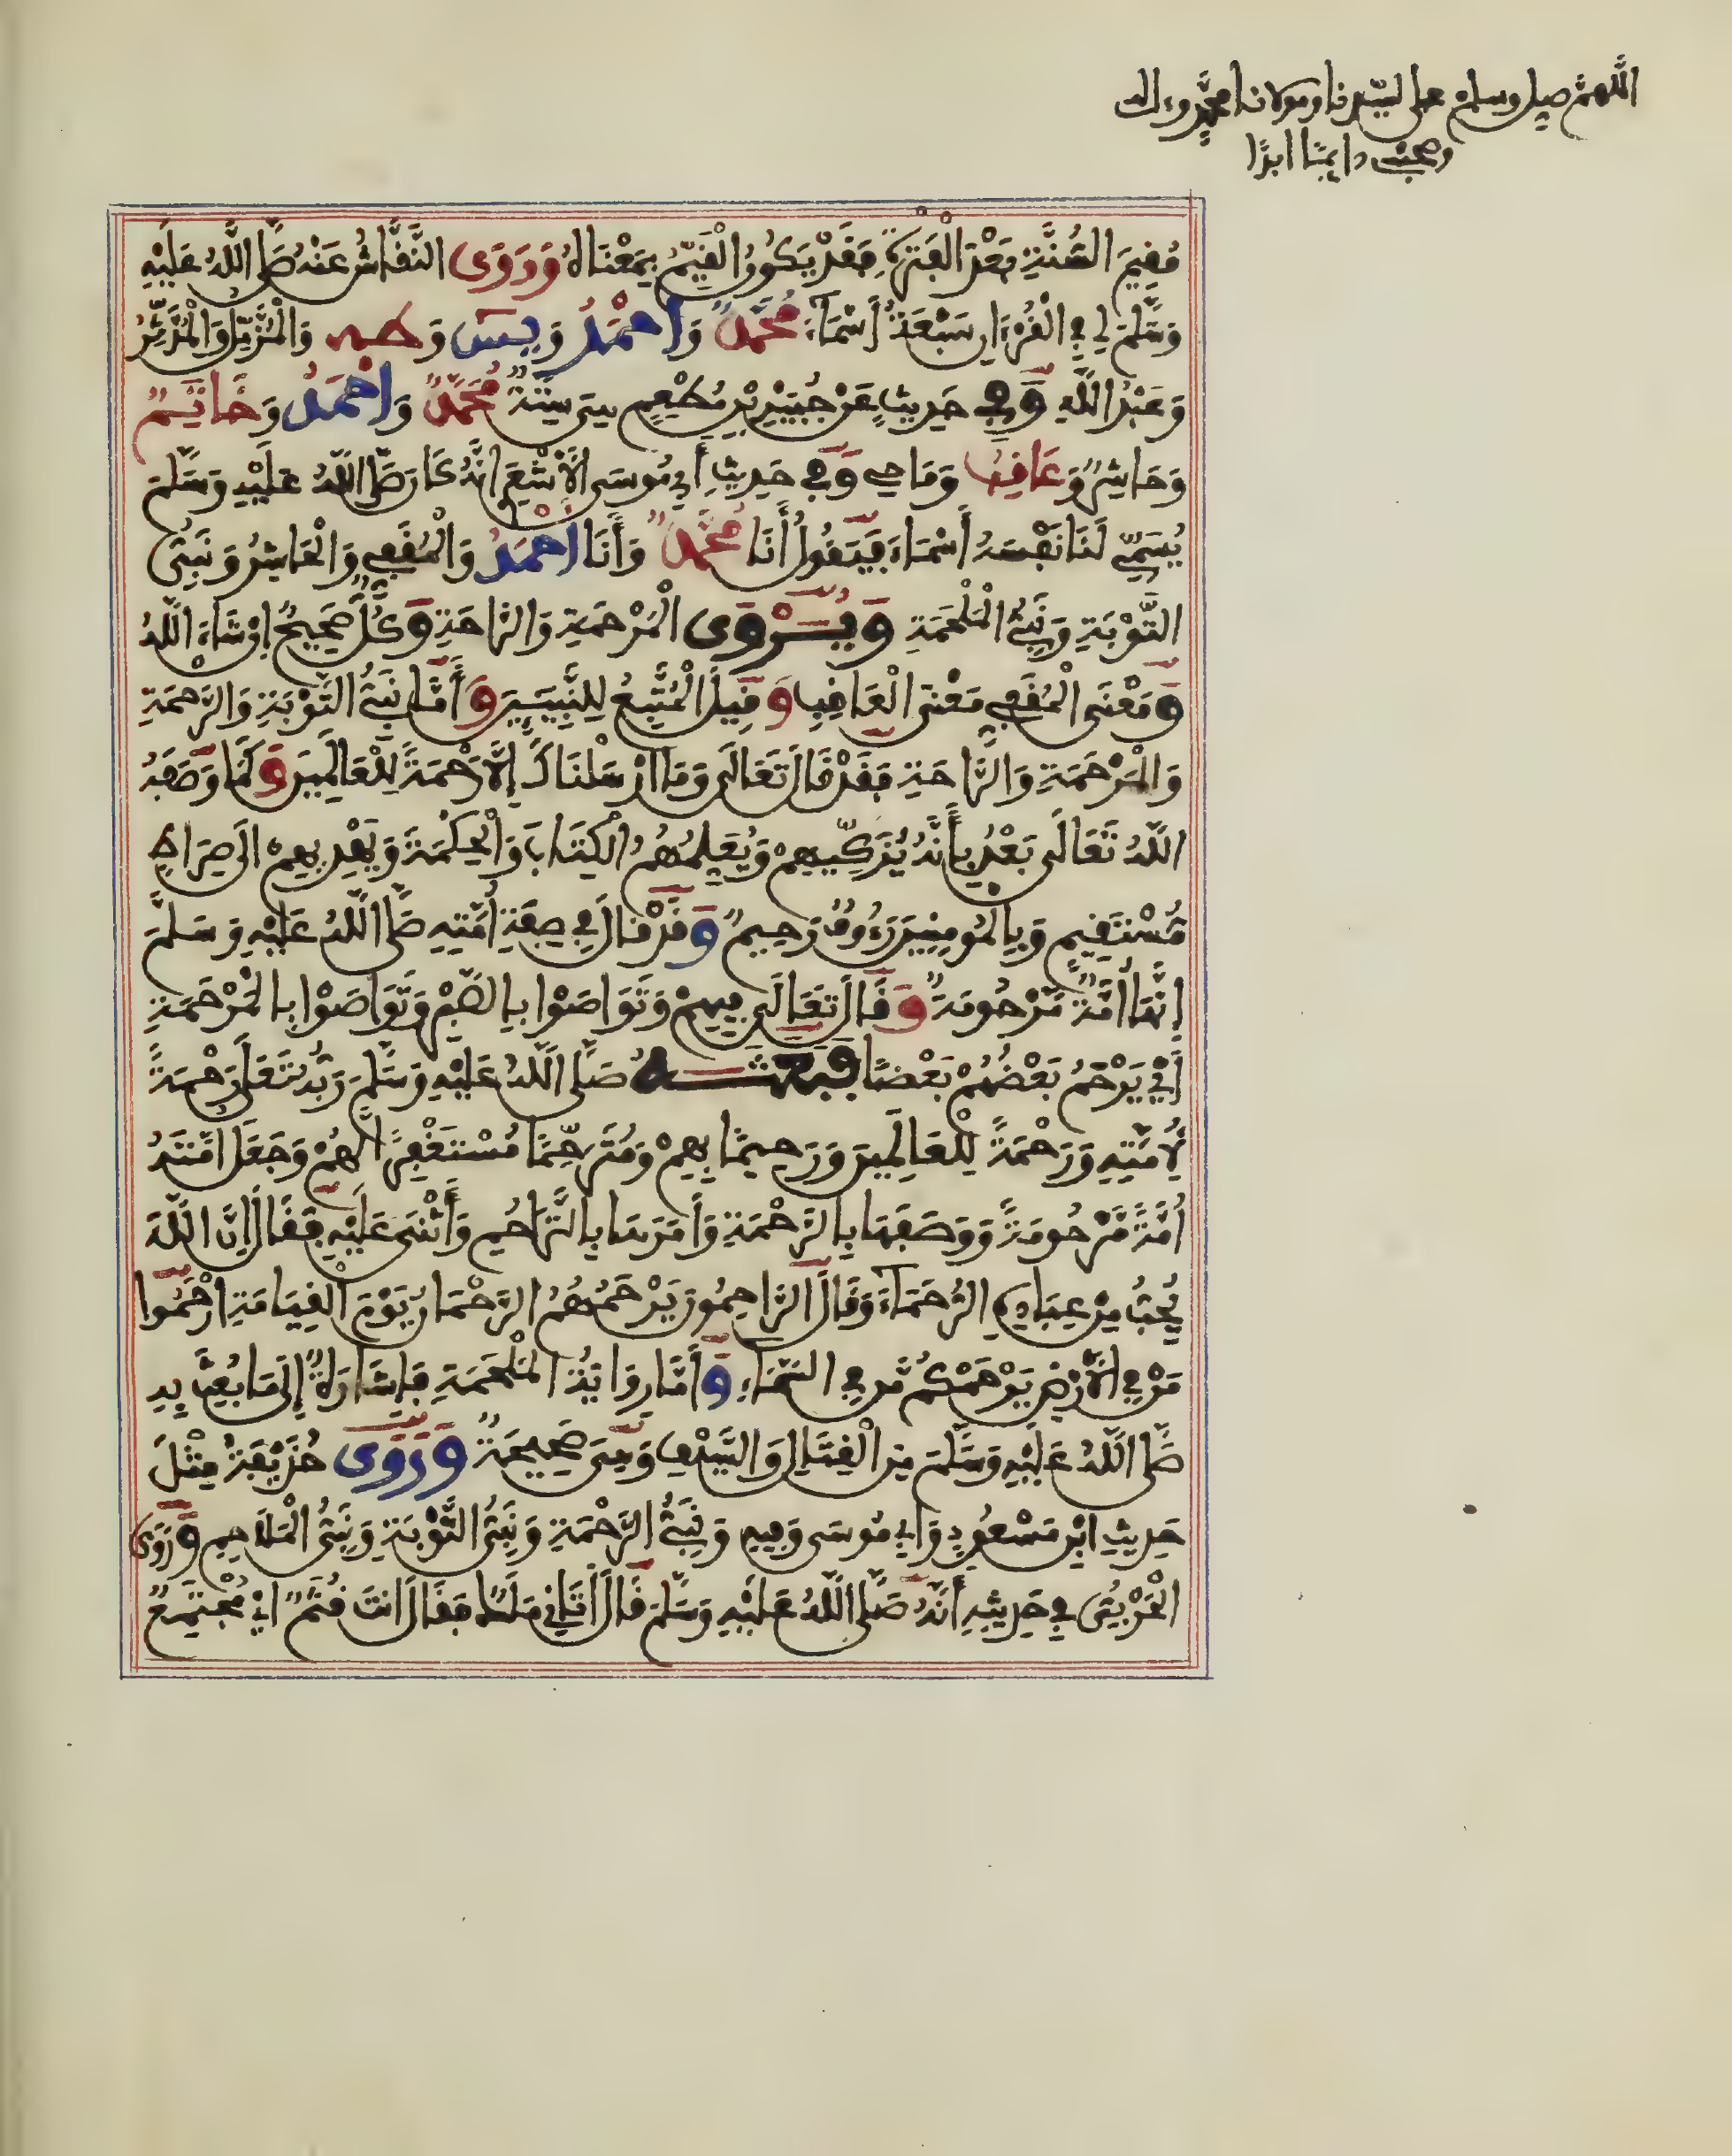 اللهم صل وسلم على سيدنا ومولانا محمد وءاله
وصحبه دايمًا ابدًا
مُقِيمَ السُّنَّةِ بَعْدَ الْفَتْرَةِ فَقَدْ يَكُونُ الْقَيِّمُ بِمَعْنَاهُ وَرَوَى النَّقَّاشُ عَنْهُ صَلَّى اللَّهُ عَلَيْهِ
وَسَلَّمَ لِي فِي الْقُرْءَانِ سَبْعَةُ أَسْمَاءَ مُحَمَّدٌ وَأَحْمَدُ وَيس وَطه وَالْمُدَّثِّرُ وَالْمُزَّمِّلُ
وَعَبْدُ اللَّهِ وَفِي حَدِيثٍ عَنْ جُبَيْرِ بْنِ مُطْعِمٍ هِيَ سِتَّةٌ مُحَمَّدٌ وَأَحْمَدُ وَخَاتَمٌ
وَحَاشِرٌ وَعَاقِبٌ وَمَاحِي وَفِي حَدِيثِ أَبِي مُوسَى الْأَشْعَرِي انَّهُ كَانَ صَلَّى اللَّهُ عَلَيْهِ وَسَلَّمَ
يُسَمِّي لَنَا نَفْسَهُ أَسْمَاءَ فَيَقُولُ أَنَا مُحَمَّدٌ وَأَنَا أَحْمَدُ وَالْمُقَفِّي وَالْحَاشِرُ وَنَبِيُّ
التَّوْبَةِ وَنَبِيُّ الْمَلْحَمَةِ وَيُرْوَى الْمَرْحَمَةِ وَالرَّاحَةِ وَكُلٌّ صَحِيحٌ انْ شَاءَ اللَّهُ
وَمَعْنَى الْمُقَفِّي مَعْنَى الْعَاقِبِ وَقِيلَ الْمُتَّبِعُ لِلنَّبِيِّينَ وَأَمَّا نَبِيُّ التَّوْبَةِ وَالرَّحْمَةِ
وَالْمَرْحَمَةِ وَالرَّاحَةِ فَقَدْ قَالَ تَعَالَى وَمَا ارْسَلْنَاكَ إِلَّا رَحْمَةً لِلْعَالَمِينَ وَكَمَا وَصَفَهُ
اللَّهُ تَعَالَى بَعْدُ بِأَنَّهُ يُزَكِّيهِمْ وَيُعَلِّمُهُمُ الْكِتَابَ وَالْحِكْمَةَ وَيَهْدِيهِمْ الَى صِرَاطٍ
مُسْتَقِيمٍ وَبِالْمُومِنِينَ رَءُوفٌ رَحِيمٌ وَقَدْ قَالَ فِي صِفَةِ أُمَّتِهِ صَلَّى اللَّهُ عَلَيْهِ وَسَلَّمَ
انَّهَا أُمَّةٌ مَرْحُومَةٌ وَقَالَ تَعَالَى فِيهِمْ وَتَوَاصَوْا بِالصَّبْرِ وَتَوَاصَوْا بِالْمَرْحَمَةِ
أَيْ يَرْحَمُ بَعْضُهُمْ بَعْضًا فَبَعَثَهُ صَلَّى اللَّهُ عَلَيْهِ وَسَلَّمَ رَبُّهُ تَعَلَى رَحْمَةً
لِأُمَّتِهِ وَرَحْمَةً لِلْعَالَمِينَ وَرَحِيمًا بِهِمْ وَمُتَرَحِّمًا مُسْتَغْفِرًا لَهُمْ وَجَعَلَ امَّتَهُ
أُمَّةً مَرْحُومَةً وَوَصَفَهَا بِالرَّحْمَةِ وَأَمَرَهَا بِالتَّرَاحُمِ وَأَثْنَى عَلَيْهِ فَقَالَ إِنَّ اللَّهَ
يُحِبُّ مِنْ عِبَادِهِ الرُّحَمَاءَ وَقَالَ الرَّاحِمُونَ يَرْحَمُهُمُ الرَّحْمَانُ يَوْمَ الْقِيَامَةِ ارْحَمُوا
مَنْ فِي الْأَرْضِ يَرْحَمْكُم مَّن فِي السَّمَاءِ وَأَمَّا رِوَايَةُ الْمَلْحَمَةِ فَإِشَارَةٌ إِلَى مَا بُعِثَ بِهِ
صَلَّى اللَّهُ عَلَيْهِ وَسَلَّمَ مِنَ الْقِتَالِ وَالسَّيْفِ وَهِيَ صَحِيحَةٌ وَرَوَى حُذَيْفَةُ مِثْلَ
حَدِيثِ ابْنِ مَسْعُودٍ وَأَبِي مُوسَى وَفِيهِ وَنَبِيُّ الرَّحْمَةِ وَنَبِيُّ التَّوْبَةِ وَنَبِيُّ الْمَلَاحِمِ وَرَوَى
الْحَرْبِيُّ فِي حَدِيثِهِ أَنَّهُ صَلَّى اللَّهُ عَلَيْهِ وَسَلَّمَ قَالَ أَتَانِي مَلَكٌ فَقَالَ انتَ قُثَمٌ ايْ مُجْتَمِعٌ